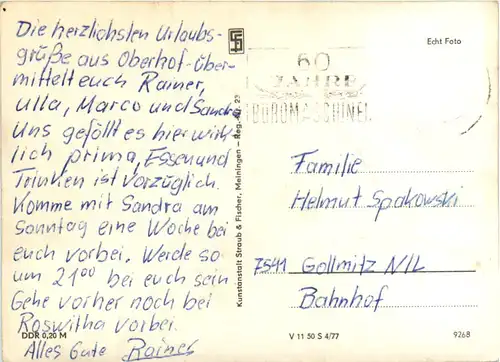 Die herzlichsten Urlaubs-
grüße aus Oberhof über-
mittelt euch Rainer,
Ulla, Marco und Sandra
Uns gefällt es hier wirk
lich prima, Essen und
Trinken ist vorzüglich.
Komme mit Sandra am
Sonntag eine Woche bei
euch vorbei. Werde so
um 21⁰⁰ bei euch sein
Gehe vorher noch bei
Roswitha vorbei.
Alles Gute Rainer
DDR 0,20 M
Kunstanstalt Straub & Fischer, Meiningen – Reg.-Nr. 23
60
JAHRE
BÜROMASCHINEN
Echt Foto
Familie
Helmut Spakowski
7541 Gollmitz N/L
Bahnhof
V 11 50 S 4/77
9268